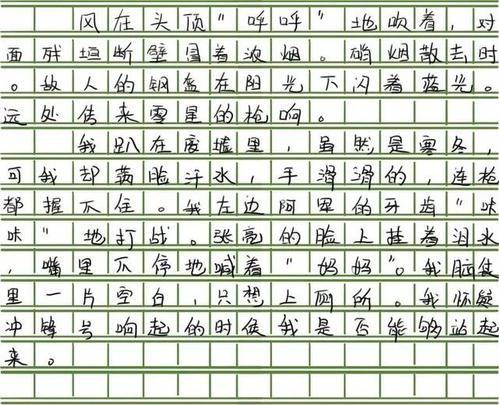 风在头顶“呼呼”地吹着，对
面残垣断壁冒着浓烟。硝烟散去时
。敌人的钢盔在阳光下闪着蓝光。
远处传来零星的枪响。
我趴在废墟里，虽然是寒冬，
可我却满脸汗水，手滑滑的，连枪
都握不住。我左边阿里的牙齿“咔
咔”地打战。张亮的脸上挂着泪水
，嘴里不停地喊着“妈妈”。我脑袋
里一片空白，只想上厕所。我怀疑
冲锋号响起的时候我是否能够站起
来。